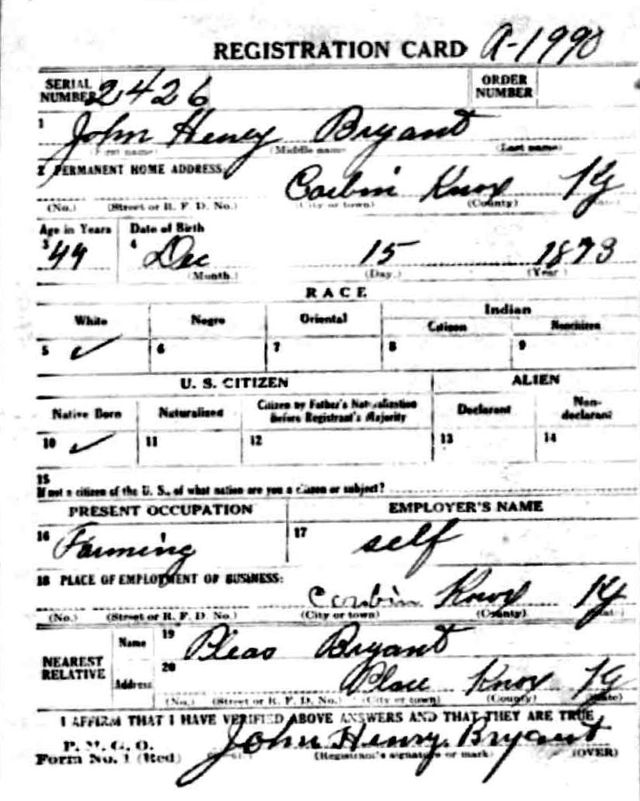 REGISTRATION CARD A-1990
SERIAL NUMBER 2426 ORDER NUMBER
1 John Henry Bryant
(First name) (Middle name) (Last name)
2 PERMANENT HOME ADDRESS
Corbin Knox Ky
(No.) (Street or R. F. D. No.) (City or town) (County) (State)
Age in Years Date of Birth
3 44 4 Dec 15 1873
(Month.) (Day.) (Year)
RACE
White Negro Oriental Indian
Citizen Noncitizen
5 ✓ 6 7 8 9
U. S. CITIZEN ALIEN
Native Born Naturalized Citizen by Father's Naturalization Before Registrant's Majority Declarant Non-declarant
10 ✓ 11 12 13 14
15
If not a citizen of the U. S., of what nation are you a citizen or subject?
PRESENT OCCUPATION EMPLOYER'S NAME
16 Farming 17 self
18 PLACE OF EMPLOYMENT OR BUSINESS:
Corbin Knox Ky
(No.) (Street or R. F. D. No.) (City or town) (County) (State)
NEAREST RELATIVE Name 19 Pleas Bryant
Address 20 Place Knox Ky
(No.) (Street or R. F. D. No.) (City or town) (County) (State)
I AFFIRM THAT I HAVE VERIFIED ABOVE ANSWERS AND THAT THEY ARE TRUE
P. M. G. O.
Form No. 1 (Red) John Henry Bryant
(Registrant's signature or mark) (OVER)